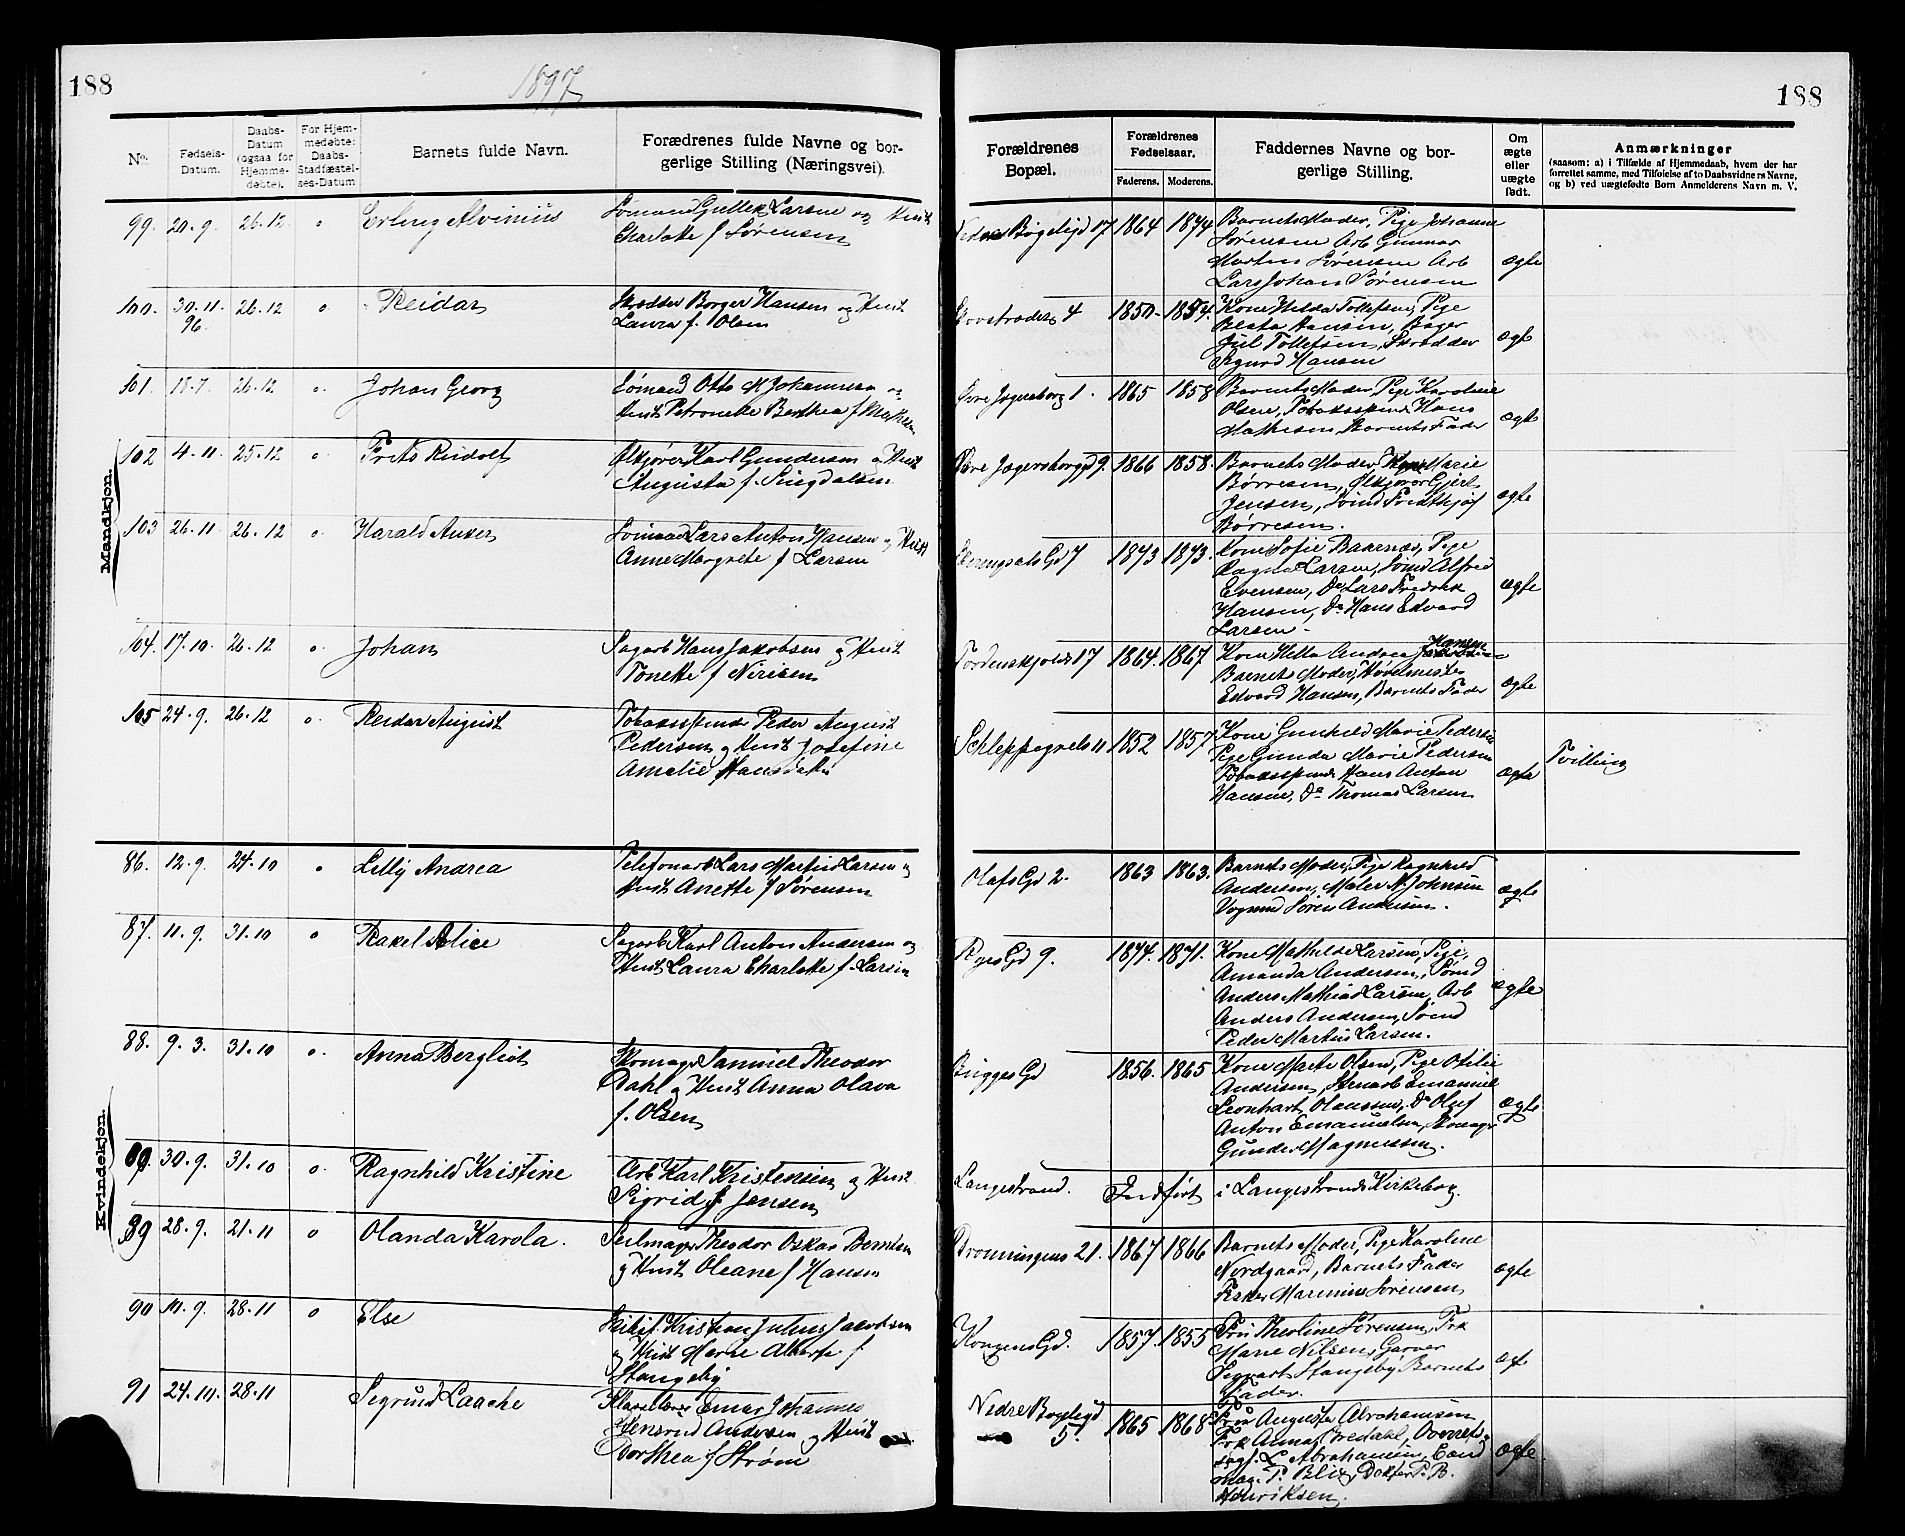 188
1897
188
No.
Fødsels-Datum.
Daabs-Datum (ogsaa for Hjemme-døbte).
For Hjem-medøbte: Daabs-Stadfæstel-ses-Datum
Barnets fulde Navn.
Forædrenes fulde Navne og bor-
gerlige Stilling (Næringsvei).
Forældrenes
Bopæl.
Forældrenes Fødselsaar.
Faderens.
Moderens.
Faddernes Navne og bor-
gerlige Stilling.
Om ægte eller uægte født.
Anmærkninger
(saasom: a) i Tilfælde af Hjemmedaab, hvem der har
forrettet samme, med Tilføielse af to Daabsvidners Navne,
og b) ved uægtefødte Børn Anmelderens Navn m. V.
Mandkjøn.
99. 20.9. 26.12 o Erling Alvinius
Sømand Gullik Larsen og Hust
Charlotte f Sørensen
Nedre Bøgeligd 17 1864 1874
Barnets Moder, Pige Johanne
Sørensen Arb Gunnar
Martin Sørensen Arb
Lars Johan Sørensen
ægte
100. 30.11. 96. 26.12 o Reidar
Skrædder Borger Hansen og Hust
Laura f. Olsen
4 1850. 1854.
Kone Hilda Tollefsen, Pige
Beata Hansen, Bager
Juel Tollefsen, Skrædder
Sigurd Hansen
ægte
101. 18.7. 26.12 o. Johan Georg
Sømand Otto M Johannesen og
Hust Petronelle Berthea f Mathesen
Øvre Jegersborg 1. 1865 1858
Barnets Moder, Pige Karoline
Olsen, Tobaksspind Hans
Mathesen, Barnets Fader
ægte
102 4.11 25.12 o. Frits Rudolf
Ølkjører Karl Gundersen og Hust
Augusta f. Sugdalsen
Øvre Jægersborggd 9. 1866 1858.
Barnets Moder, Kone Marie
Børresen, Ølkjører Gjert
Jensen, Sømd Fridthjof
Børresen.
ægte
103 26.11. 26.12 o. Harald Anker
Sømand Lars Anton Hansen og Hust
Anne Margrete f Larsen
Gd 7 1873 1873.
Kone Sofie Bakernæs, Pige
Ragna Larsen, Sømd Alfred
Evensen, Do Lars Fredrik
Hansen, Do Hans Edvard
Larsen.
ægte
104. 17.10. 26.12 o. Johan
Sagarb Hans Jakobsen og Hust
Tonette f Nirisen
Tordenskjolds 17 1864. 1867
Kone Hella Andrea Hansen
Barnets Moder,
Edvard Hansen, Barnets Fader
ægte
105 24.9. 26.12 o. Reidar August
Tobaksspinder Peder August
Pedersen og Hust Josefine
Amalie Hansdatter
Schleppegrels 11 1852 1857
Kone Gunhild Marie Pedersen
Pige Gunda Marie Pedersen
Tobaksspinder Hans Anton
Hansen, Do Thomas Larsen
ægte
Tvilling
Kvindekjøn.
86. 12.9. 24.10 o Lilly Andrea
Telefonarb Lars Martin Larsen og
Hust Anette f Sørensen
Olafs Gd 2. 1863 1863.
Barnets Moder, Pige Ragnhild
Andersen, Maler A Johnsen
Vognmd Søren Andersen.
ægte
87. 11.9. 31.10 o Rakel Alice
Sagarb Karl Anton Andersen og
Hust Laura Charlotte f. Larsen
Ryes Gd 9. 1874. 1871.
Kone Mathilde Larsen, Pige
Amanda Andersen, Sømd
Anders Mathias Larsen, Arb
Anders Andersen, Sømd
Peder Martin Larsen.
ægte
88. 9.3. 31.10 o. Anna Bergliot
Skomager Samuel Theodor
Dahl og Hust Anna Olava
f. Olsen
Brigges Gd 1856. 1865
Kone Marte Olsen, Pige Otilie
Andersen, Stenarb Emanuel
Leonhart Olaussen, Do Oluf
Anton Emanuelsen, Skomager
Gunder Magnussen.
ægte
89. 30.9. 31.10 o. Ragnhild Kristine
Arb Karl Kristensen og Hust
Sigrid f Jensen
Langestrand. Indført i Langestrands Kirkebog.
89 28.9. 21.11 o Olanda Karola.
Seilmager Theodor Oskar Berntsen
og Hust Oleane f Hansen
Dronningens 21. 1867 1866
Barnets Moder, Pige Karoline
Nordgaard, Barnets Fader
Fisker Marinius Sørensen
ægte
90 10.9. 28.11 o Else
Skibsf. Kristian Julius Jacobsen
og Hust Marie Alberte f
Stangeby
Kongens Gd. 1857. 1855
Fru Theoline Sørensen, Frk
Marie Nilsen, Garver
Segvart Stangeby, Barnets
Fader.
æt
91 24.10. 28.11 Sigrund Laache
Klasselærer Einar Johannes
Hensrud Andersen og Hust
Dorthea f Strøm
Nedre Bøgeligd 5. 1865 1868
Fru Augusta Abrahamsen
Frk Anna Bredahl, Overrets
sagf. L Abrahamsen, Cand
mag. P. Blix, Doktor P. B.
Henriksen.
ægte.